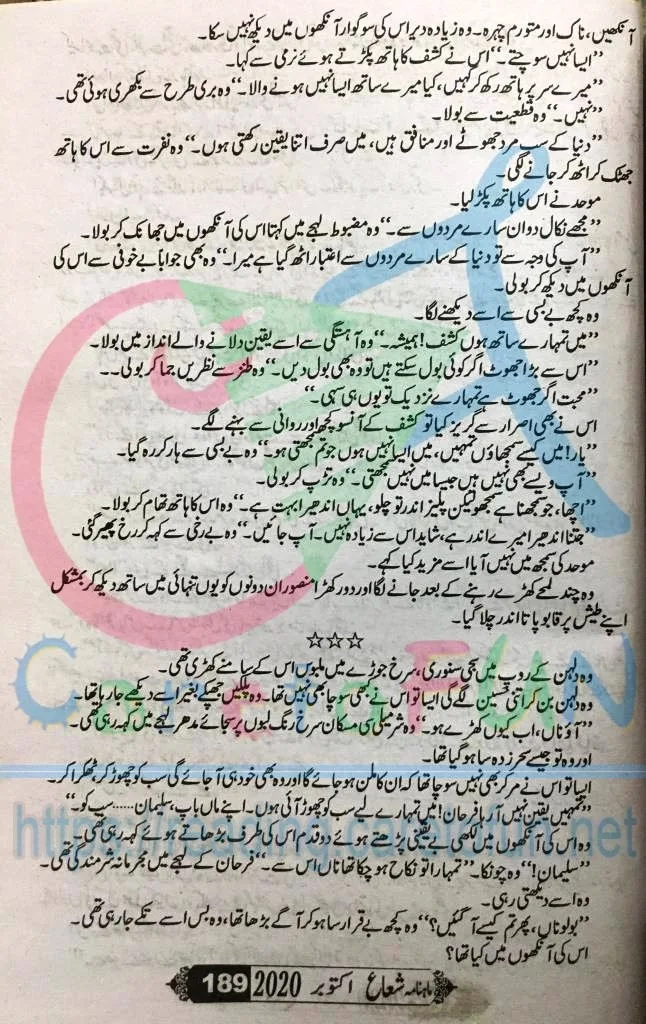 آنکھیں، ناک اور متورم چہرہ۔ وہ زیادہ دیر اس کی سوگوار آنکھوں میں دیکھ نہیں سکا۔
”ایسا نہیں سوچتے۔“ اس نے کشف کا ہاتھ پکڑتے ہوئے نرمی سے کہا۔
”میرے سر پر ہاتھ رکھ کر کہیں، کیا میرے ساتھ ایسا نہیں ہونے والا۔“ وہ بری طرح سے بکھری ہوئی تھی۔
”نہیں۔“ وہ قطعیت سے بولا۔
”دنیا کے سب مرد جھوٹے اور منافق ہیں، میں صرف اتنا یقین رکھتی ہوں۔“ وہ نفرت سے اس کا ہاتھ
جھٹک کر اٹھ کر جانے لگی۔
موحد نے اس کا ہاتھ پکڑ لیا۔
”مجھے نکال دو ان سارے مردوں سے۔“ وہ مضبوط لہجے میں کہتا اس کی آنکھوں میں جھانک کر بولا۔
”آپ کی وجہ سے تو دنیا کے سارے مردوں سے اعتبار اٹھ گیا ہے میرا۔“ وہ بھی جواباً بے خوفی سے اس کی
آنکھوں میں دیکھ کر بولی۔
وہ کچھ بے بسی سے اسے دیکھنے لگا۔
”میں تمہارے ساتھ ہوں کشف! ہمیشہ۔“ وہ آہستگی سے اسے یقین دلانے والے انداز میں بولا۔
”اس سے بڑا جھوٹ اگر کوئی بول سکتے ہیں تو وہ بھی بول دیں۔“ وہ طنز سے نظریں جما کر بولی۔۔
”محبت اگر جھوٹ ہے تمہارے نزدیک تو یوں ہی سہی۔“
اس نے بھی اصرار سے گریز کیا تو کشف کے آنسو کچھ اور روانی سے بہنے لگے۔
”یار! میں کیسے سمجھاؤں تمہیں، میں ایسا نہیں ہوں جو تم سمجھتی ہو۔“ وہ بے بسی سے ہار کر رہ گیا۔
”آپ ویسے بھی نہیں ہیں جیسا میں نہیں سمجھتی۔“ وہ تڑپ کر بولی۔
”اچھا، جو سمجھنا ہے سمجھو لیکن پلیز اندر تو چلو، یہاں اندھیرا بہت ہے۔“ وہ اس کا ہاتھ تھام کر بولا۔
”جتنا اندھیرا میرے اندر ہے، شاید اس سے زیادہ نہیں۔ آپ جائیں۔“ وہ بے رخی سے کہہ کر رخ پھیر گئی۔
موحد کی سمجھ میں نہیں آیا اسے مزید کیا کہے۔
وہ چند لمحے کھڑے رہنے کے بعد جانے لگا اور دور کھڑا منصور ان دونوں کو یوں تنہائی میں ساتھ دیکھ کر بمشکل
اپنے طیش پر قابو پاتا اندر چلا گیا۔
☆☆☆
وہ دلہن کے روپ میں سجی سنوری، سرخ جوڑے میں ملبوس اس کے سامنے کھڑی تھی۔
وہ دلہن بن کر اتنی حسین لگے گی ایسا تو اس نے کبھی سوچا بھی نہیں تھا۔ وہ پلکیں جھپکے بغیر اسے دیکھے جا رہا تھا۔
”آؤ ناں، اب کیوں کھڑے ہو۔“ وہ شرمیلی سی مسکان سرخ رنگ لبوں پر سجائے مدھر لہجے میں کہہ رہی تھی۔
اور وہ تو جیسے سحر زدہ سا ہو گیا تھا۔
ایسا تو اس نے مر کر بھی نہیں سوچا تھا کہ ان کا ملن ہو جائے گا اور وہ بھی خود ہی آ جائے گی سب کو چھوڑ کر، ٹھکرا کر۔
”تمہیں یقین نہیں آ رہا فرحان! میں تمہارے لیے سب کو چھوڑ آئی ہوں۔ اپنے ماں باپ، سلیمان ..... سب کو۔“
وہ اس کی آنکھوں میں لکھی بے یقینی پڑھتے ہوئے دو قدم اس کی طرف بڑھاتے ہوئے کہہ رہی تھی۔
”سلیمان!“ وہ چونکا۔ ”تمہارا تو نکاح ہو چکا تھا ناں اس سے۔“ فرحان کے لہجے میں مجرمانہ شرمندگی تھی۔
وہ اسے دیکھتی رہی۔
”بولو ناں، پھر تم کیسے آ گئیں؟“ وہ کچھ بے قرار سا ہو کر آگے بڑھا تھا، وہ بس اسے تکے جا رہی تھی۔
اس کی آنکھوں میں کیا تھا؟
ماہنامہ شعاع اکتوبر 2020 189